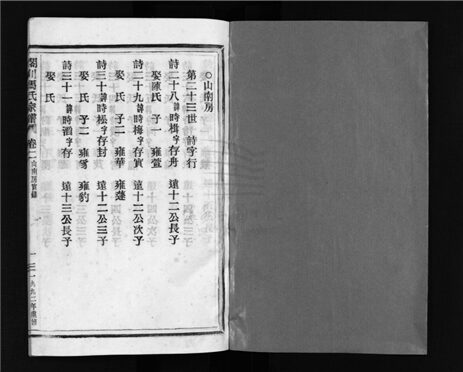 ○山南房
第二十三世 詩字行
詩二十八諱時楫字存舟 遠十二公長子
娶陳氏 子一 雍萱
詩二十九諱時梅字存實 遠十二公次子
娶 氏 子二 雍華 雍蓬
詩三十諱時松字存封 遠十二公三子
娶 氏 子二 雍 雍豹
詩三十一諱時 字存 遠十三公長子
娶 氏
閣川馮氏宗譜 卷二 山南房實錄
一 三一 九九二年重修